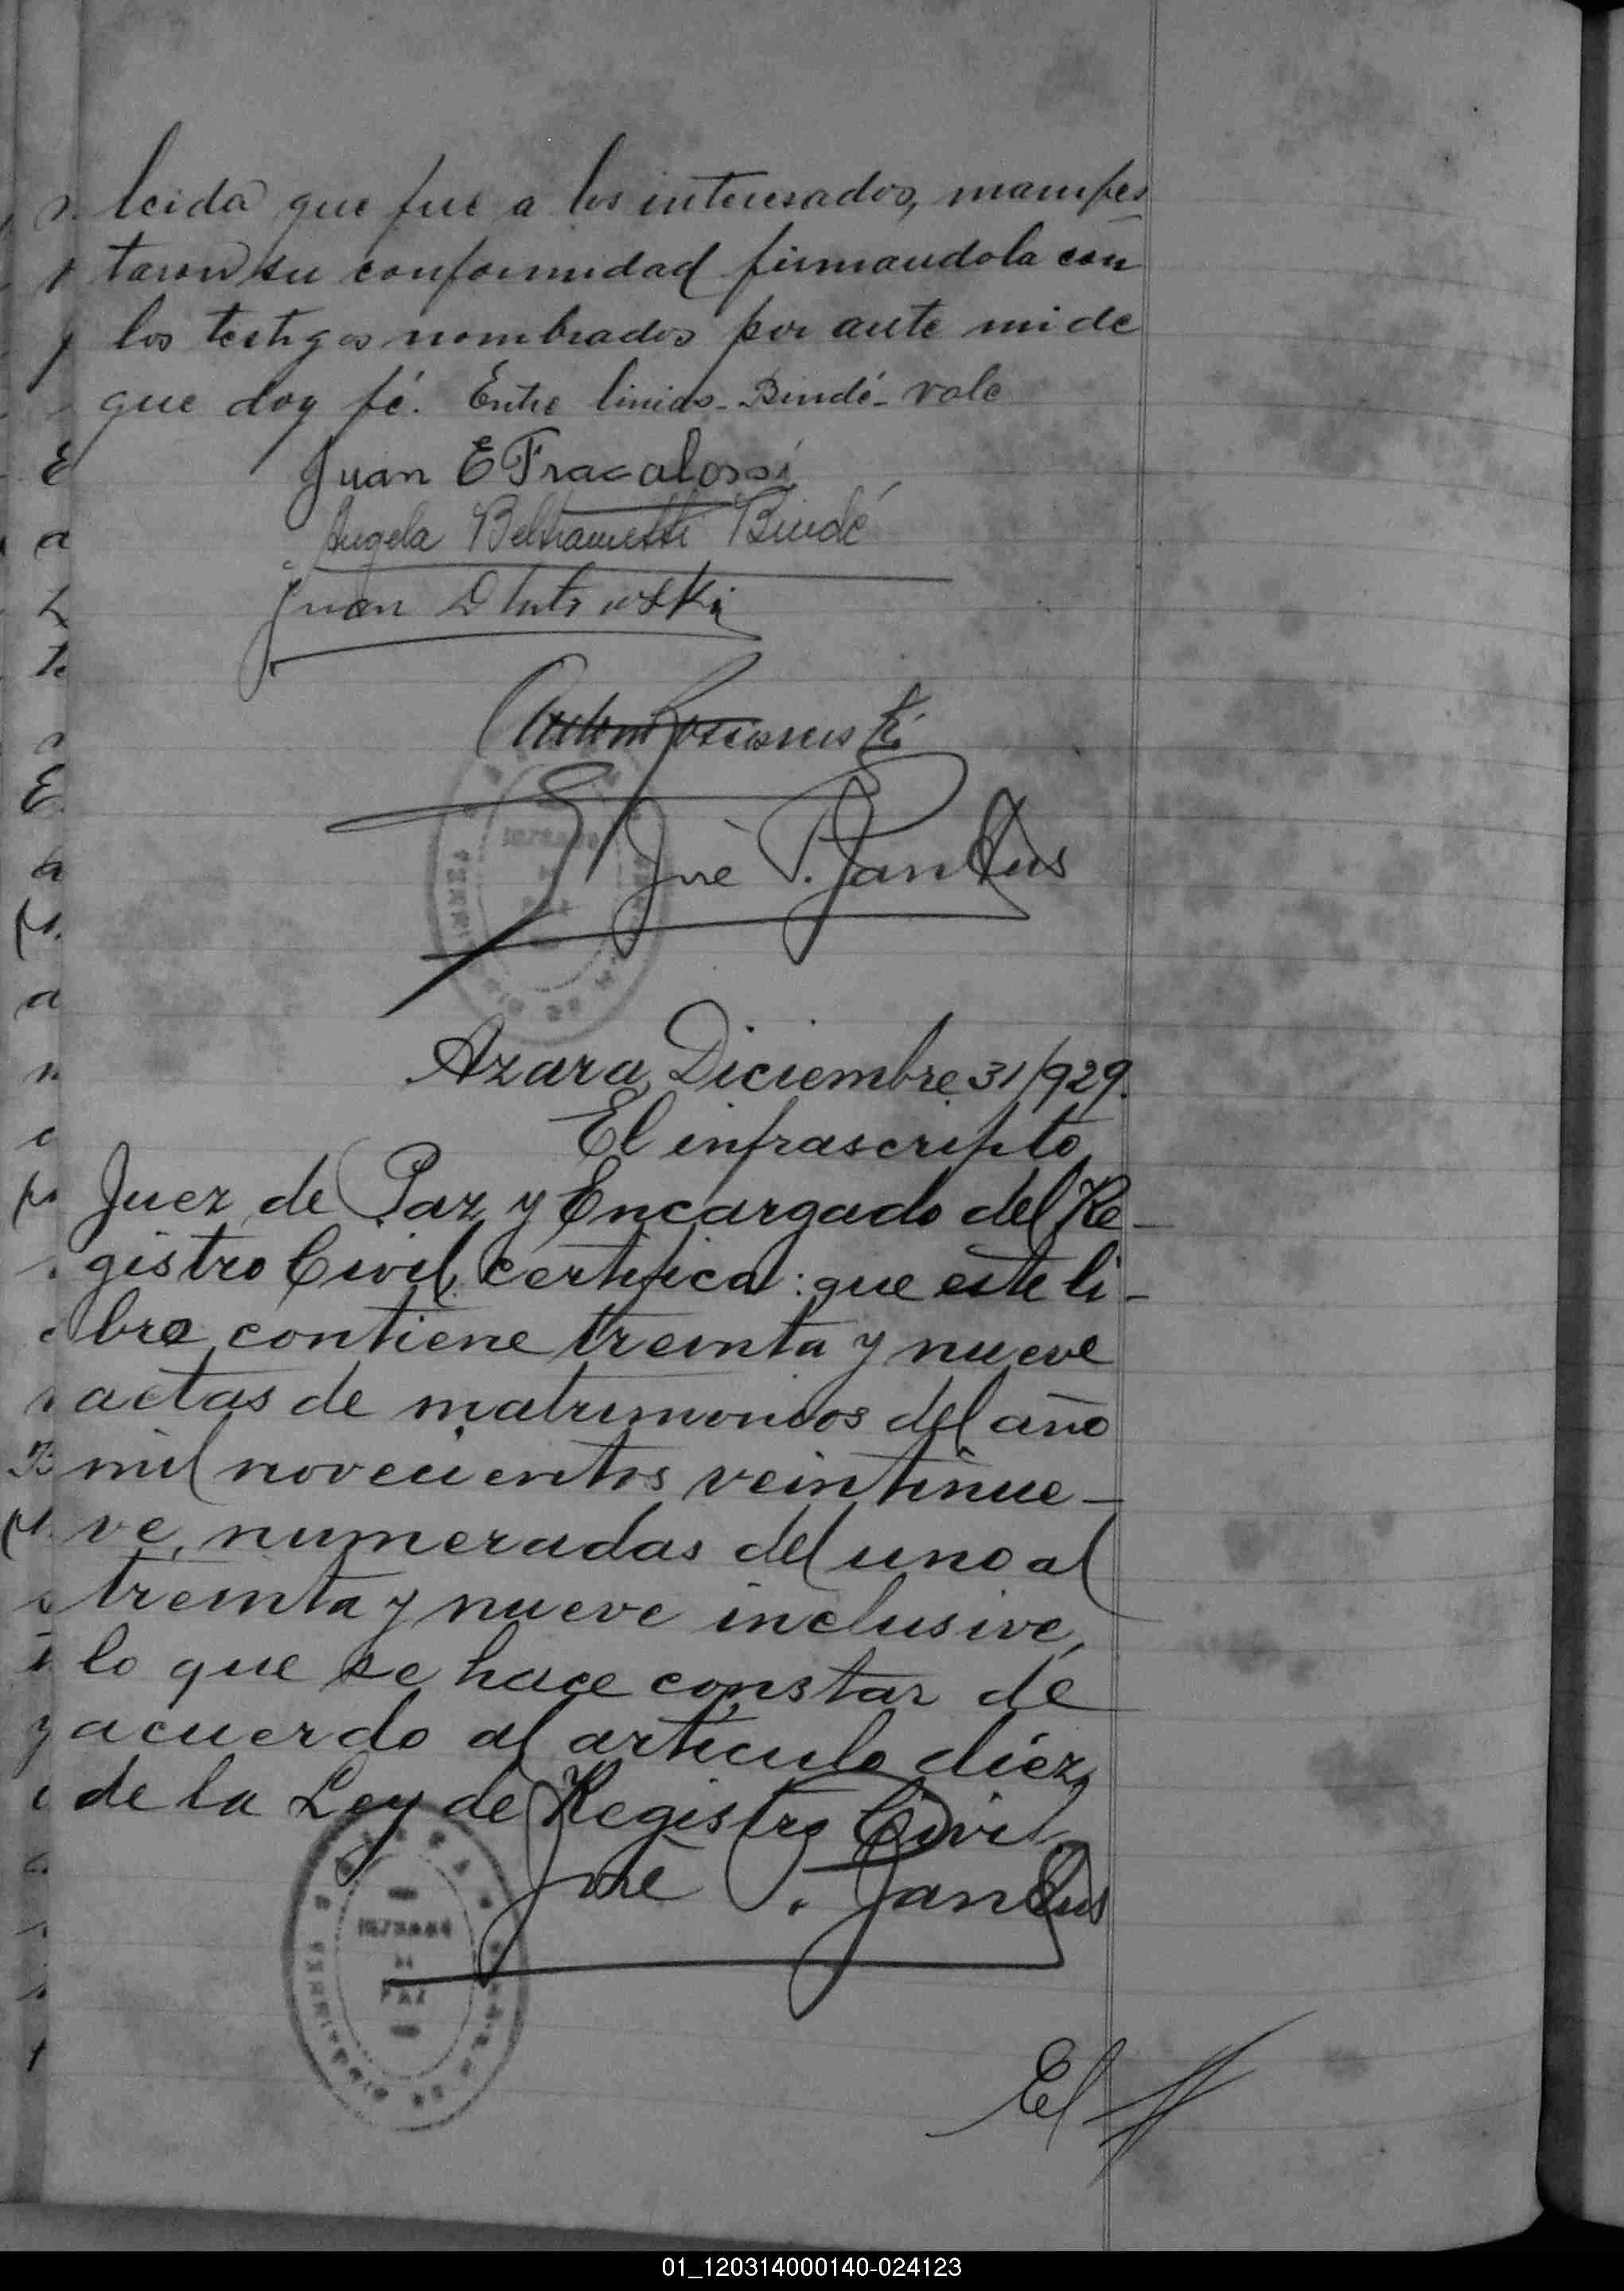 leida que fue a los interesados, manifes
taron su conformidad firmandola con
los testigos nombrados por ante mi de
que doy fé. Entre linias - Bindé - vale
Juan E Fracalossi
Angela Beltrametti Bindé
Juan Dlutowski
José P. Jan
Azara, Diciembre 31/929.
El infrascripto
Juez de Paz y Encargado del Re-
gistro Civil, certifica: que este li-
bro contiene treinta y nueve
actas de matrimonios del año
mil novecientos veintinue-
ve, numeradas del uno al
treinta y nueve inclusive,
lo que se hace constar de
acuerdo al artículo diéz
de la Ley de Registro Civil
José P. Jan
PAZ
El
01_120314000140-024123